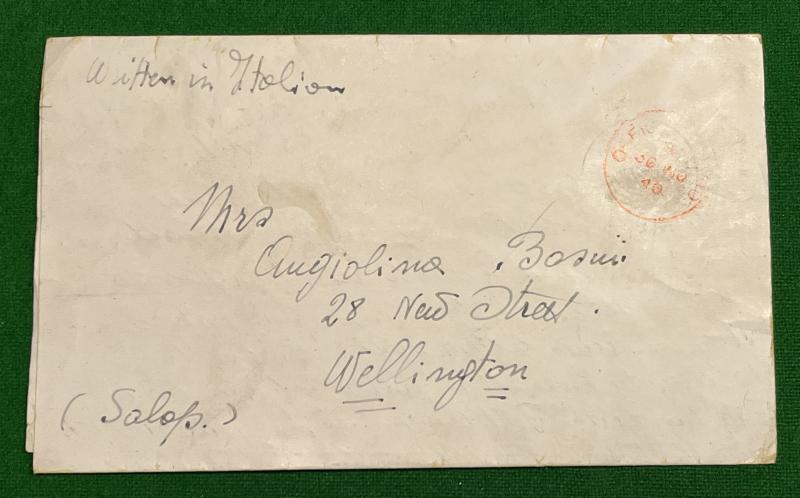 Written in Italian
Mrs
Angiolina Bosini
28 New Street.
Wellington
(Salop.)
40